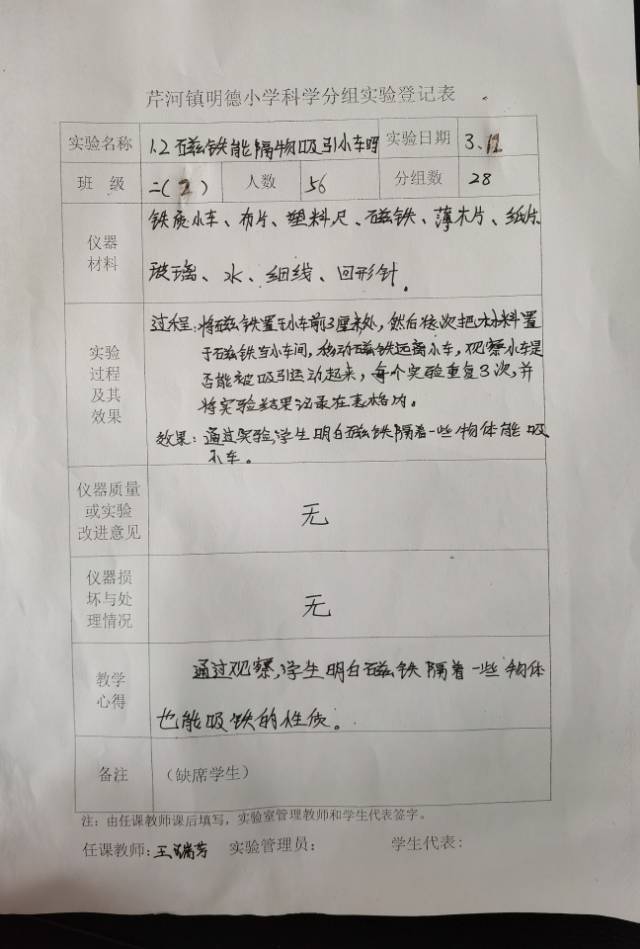 芹河镇明德小学科学分组实验登记表
实验名称 1.2磁铁能隔物吸引小车吗 实验日期 3.12
班 级 二(2) 人数 56 分组数 28
仪器材料 铁质小车、布片、塑料尺、磁铁、薄木片、纸片
玻璃、水、细线、回形针.
实验过程及其效果 过程:将磁铁置于小车前3厘米处,然后依次把材料置
于磁铁与小车间,移动磁铁远离小车,观察小车是
否能被吸引运动起来,每个实验重复3次,并
将实验结果记录在表格内。
效果:通过实验,学生明白磁铁隔着一些物体能吸
小车。
仪器质量或实验改进意见 无
仪器损坏与处理情况 无
教学心得 通过观察,学生明白磁铁隔着一些物体
也能吸铁的性质。
备注 (缺席学生)
注:由任课教师课后填写,实验室管理教师和学生代表签字。
任课教师:王瑞芳 实验管理员: 学生代表: